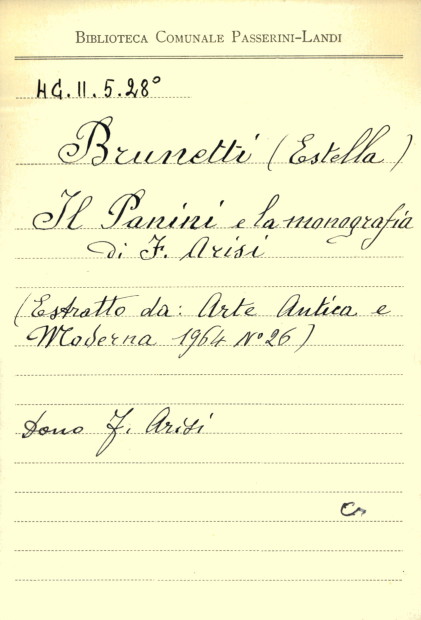 BIBLIOTECA COMUNALE PASSERINI-LANDI
HG.II.5.28°
Brunetti (Estella)
Il Panini e la monografia
di F. Arisi
(Estratto da: Arte Antica e
Moderna 1964 N°26)
Dono F. Arisi